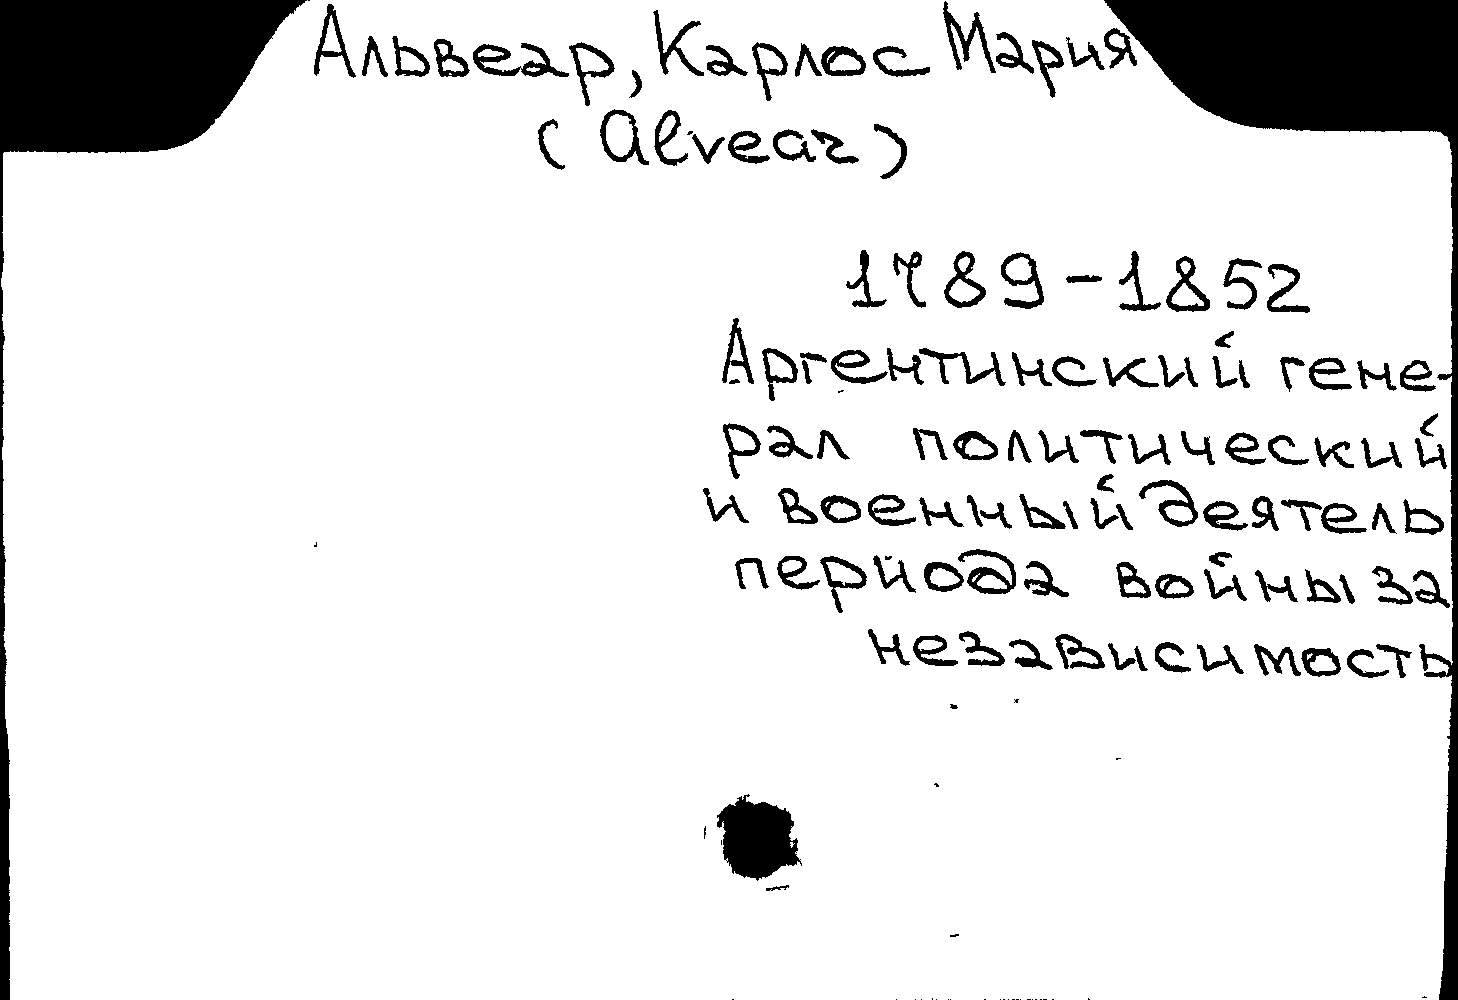 Альвеар, Карлос Мария
(Alvear)
1789-1852
Аргентинский гене-
рал политический
и военный деятель
периода войны за
независимость